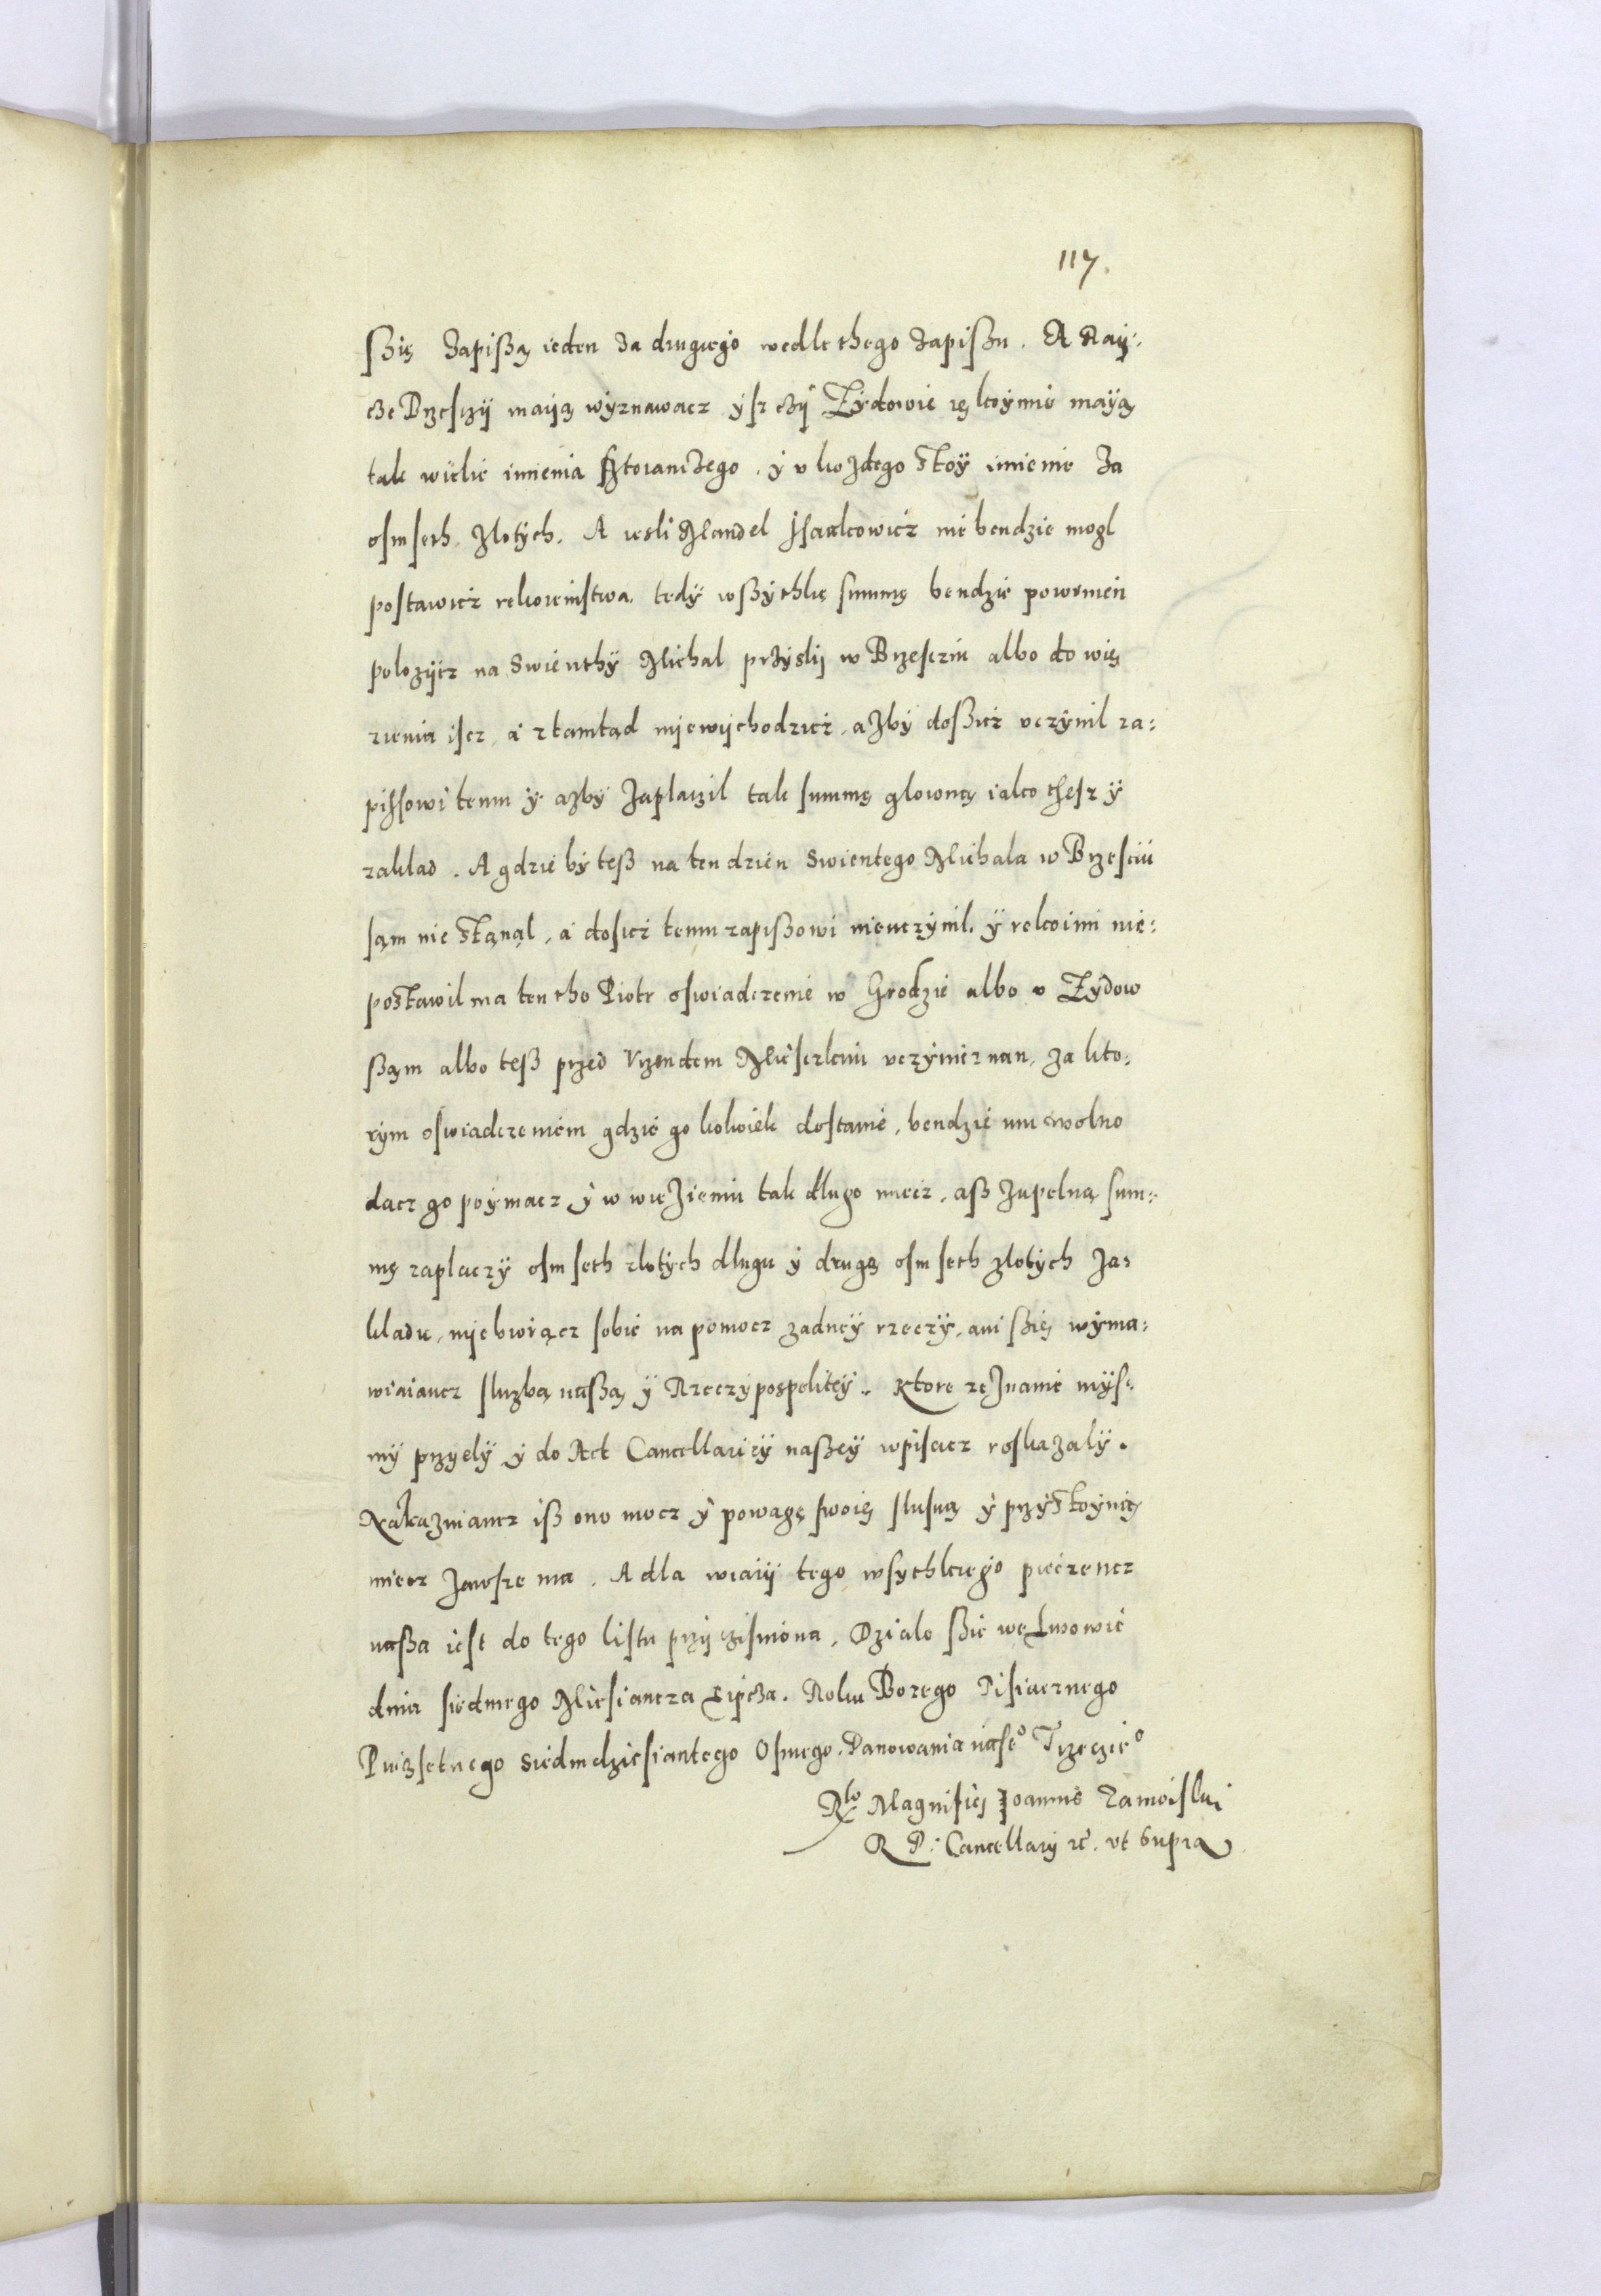 117.
ßię Zapißą ieden za drugiego wedle thego Zapißu. A Ray:
cze Brzesczy maiją wyznawacz ysz czy Żydowie rękoymie mayą
tak wielie imienia stoiaczego. y v każdego stoy imienie za
osmseth zlotych. A iesli Mandel Isaakowicz nie bendzie mogl
postawicz rekoiemstwa. tedy wßythkę summę bendzie powinien
polozycz na Swienthy Michal przysly w Brzesciu albo do wię
zienia iscz, a ztamtad niewychodzicz, azby doßicz vczynil za:
pissowi temu y azby zaplaczil tak summę glowną iako thesz y
zaklad. A gdzie by teß na ten dzien Swientego Michala w Brzesciu
sąm nie stąnąl, a dosicz temu zapißowi nieuczynil. y rekoimi nie:
postawil ma ten tho Piotr oswiadczenie w Grodzie albo v Zydow
ßąm albo teß przed Vrzendem Mieiscziem vczynicz nan, za kto:
rym oswiadczeniem gdzie go kolwiek dostanie, bendzie mu wolno
dacz go poymacz y w wiezieniu tak dlugo miecz, aß zupelną sum:
mę zaplaczy osmseth zlotych dlugu y drugą osmseth zlotych za:
kladu, niebiorącz sobie na pomocz zadney rzeczy, ani ßię wyma:
wiaiancz sluzbą naßą y Rzeczypospolitey. Ktore zeznanie mys:
my przyely y do Act Cancellariey naßey wpisacz roskazaly.
Nakazuiancz iß ono mocz y powagę swoię slusną y przystoyną
miecz zawsze ma. A dla wiary tego wsythkiego pieczencz
naßa iest do tego listu przycisniona, Dzialo ßie we Lwowie
dnia siedmego Miesiancza Lipcza. Roku Bozego Tisiacznego
Pieczsetnego Siedmdziesiantego Osmego. Panowania nase<sup>o</sup> Trzecie<sup>o</sup>
R<sup>lo</sup> Magnifici Joannis Zamoiski
R P: Cancellarij etc. vt Supra